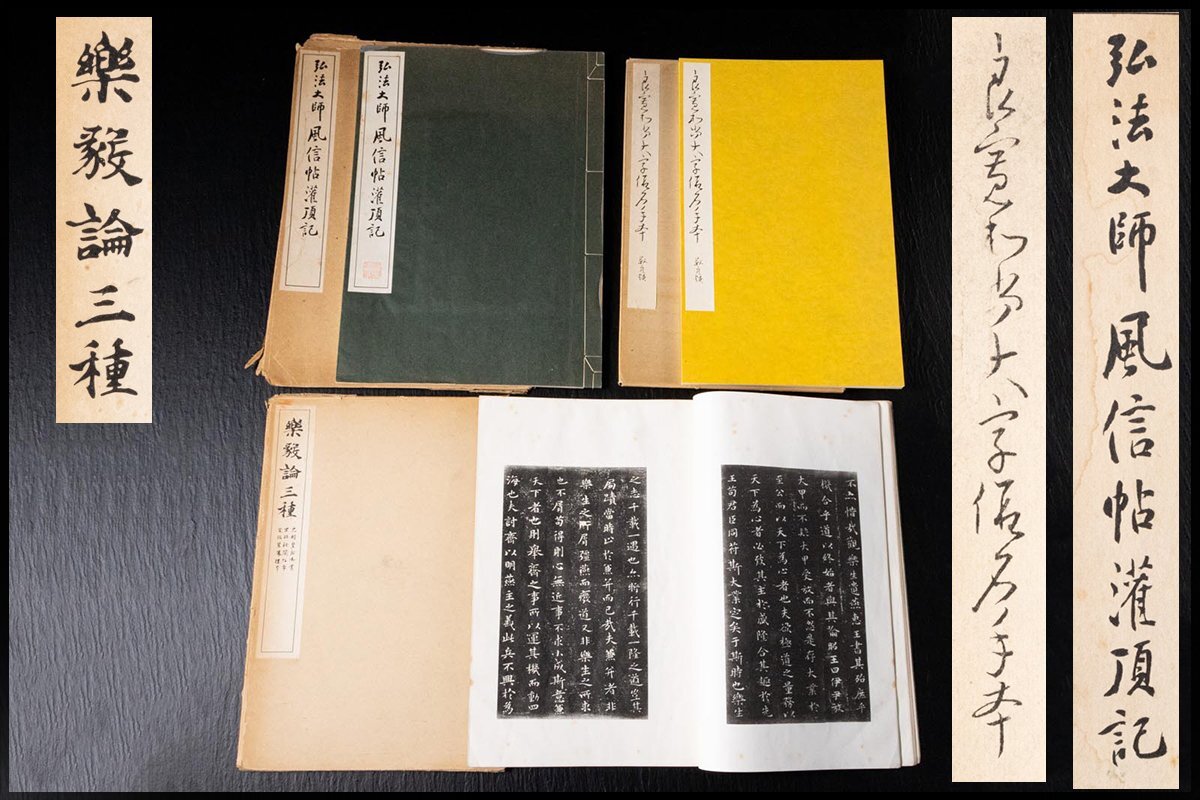 樂毅論三種
弘法大師 風信帖灌頂記
弘法大師 風信帖灌頂記
良寛和尚大字假名手本
良寛和尚大字假名手本
良寛和尚大字假名手本
弘法大師風信帖灌頂記
樂毅論三種
不亦惜哉觀樂生遺燕惠王書其殆庶乎
機合乎道以終始者與其喻昭王曰伊尹放
大甲而不疑大甲受放而不怨是存大業於
至公而以天下為心者也夫欲極道之量務以
天下為心者必致其主於盛隆合其趣於先
王苟君臣同符斯大業定矣于斯時也樂生
之志千載一遇也亦將行千載一隆之道豈其
局蹟當時止於兼并而已哉夫兼并者非
樂生之所屑彊燕而廢道又非樂生之所求
也不屑苟得則心無近事不求小成斯意兼
天下者也則舉齊之事所以運其機而動四
海也夫討齊以明燕主之義此兵不興於為